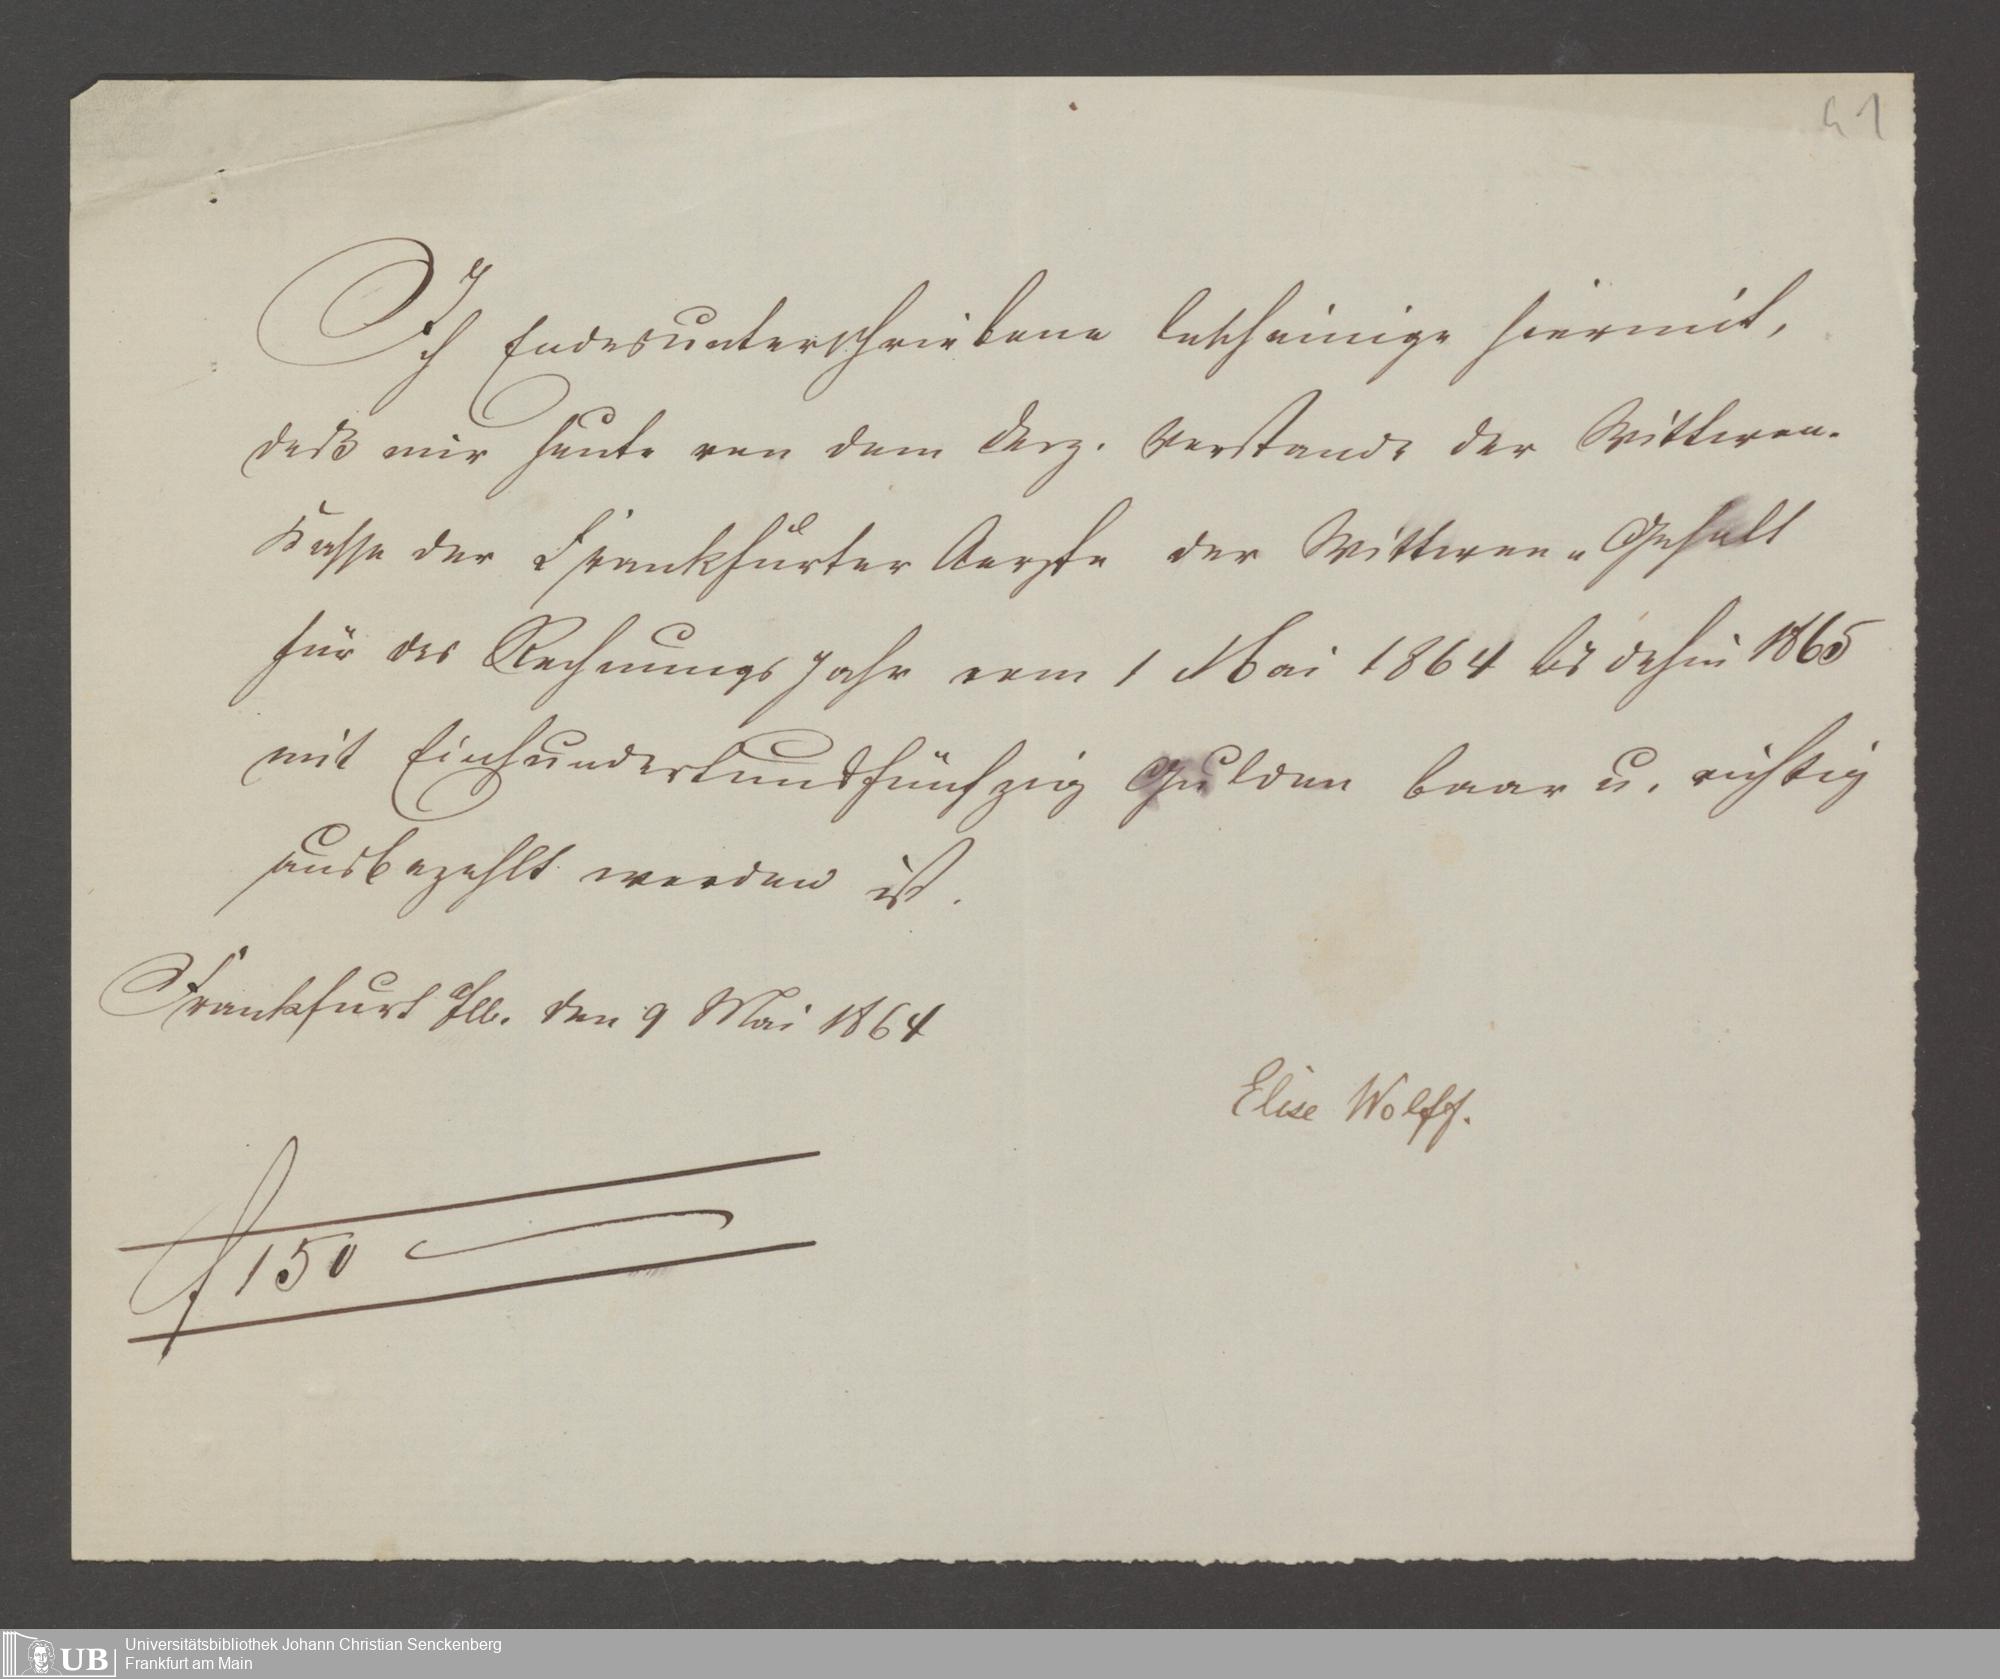 41
Ich Endesunterschriebene bescheinige hiermit,
daß mir heute von dem derz. Vorstande der Wittwen-
Kasse der Frankfurter Aerzte der Wittwen-Gehalt
für das Rechnungsjahr vom 1 Mai 1864 bis dahin 1865
mit Einhundertundfünfzig Gulden baar u. richtig
ausbezahlt worden ist.
Frankfurt a/M. den 9 Mai 1864
Elise Wolff.
f 150
UB Universitätsbibliothek Johann Christian Senckenberg
Frankfurt am Main